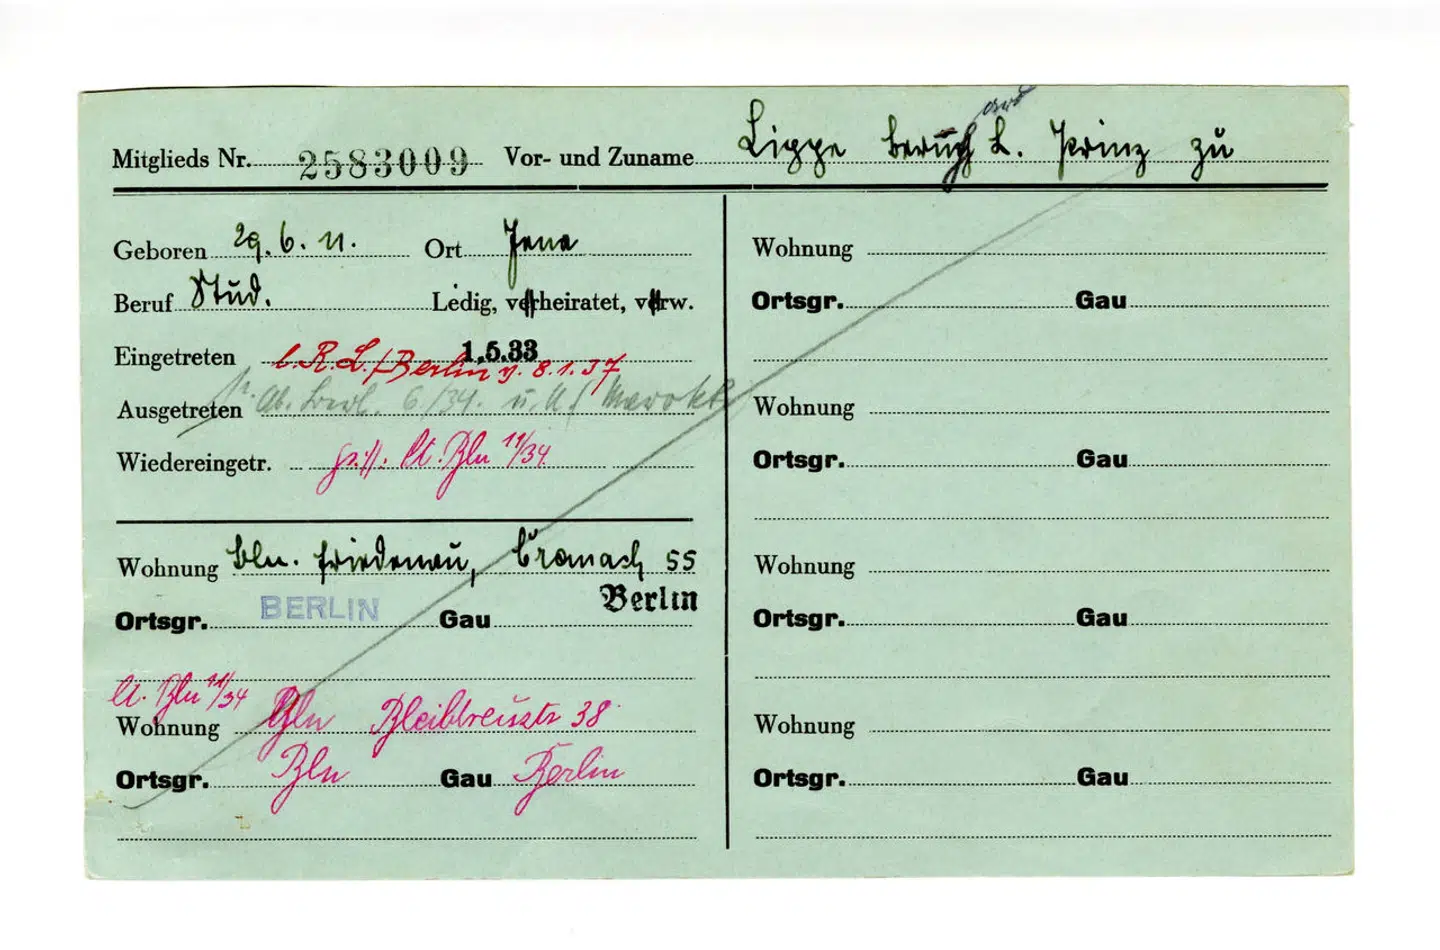 Mitglieds Nr. 2583009 Vor- und Zuname Lippe Bernh ard L. Prinz zu
Geboren 29.6.11. Ort Jena
Beruf Stud. Ledig, verheiratet, verw.
Eingetreten 1.5.33
l.R.L./Berlin v. 8.1.37
Ausgetreten 6/34. u.
Wiedereingetr. lt. Bln 11/34
Wohnung Bln. Friedenau, Cranach 55
Ortsgr. BERLIN Gau Berlin
lt. Bln 11/34
Wohnung Bln Bleibtreustr 38
Ortsgr. Bln Gau Berlin
Wohnung
Ortsgr. Gau
Wohnung
Ortsgr. Gau
Wohnung
Ortsgr. Gau
Wohnung
Ortsgr. Gau